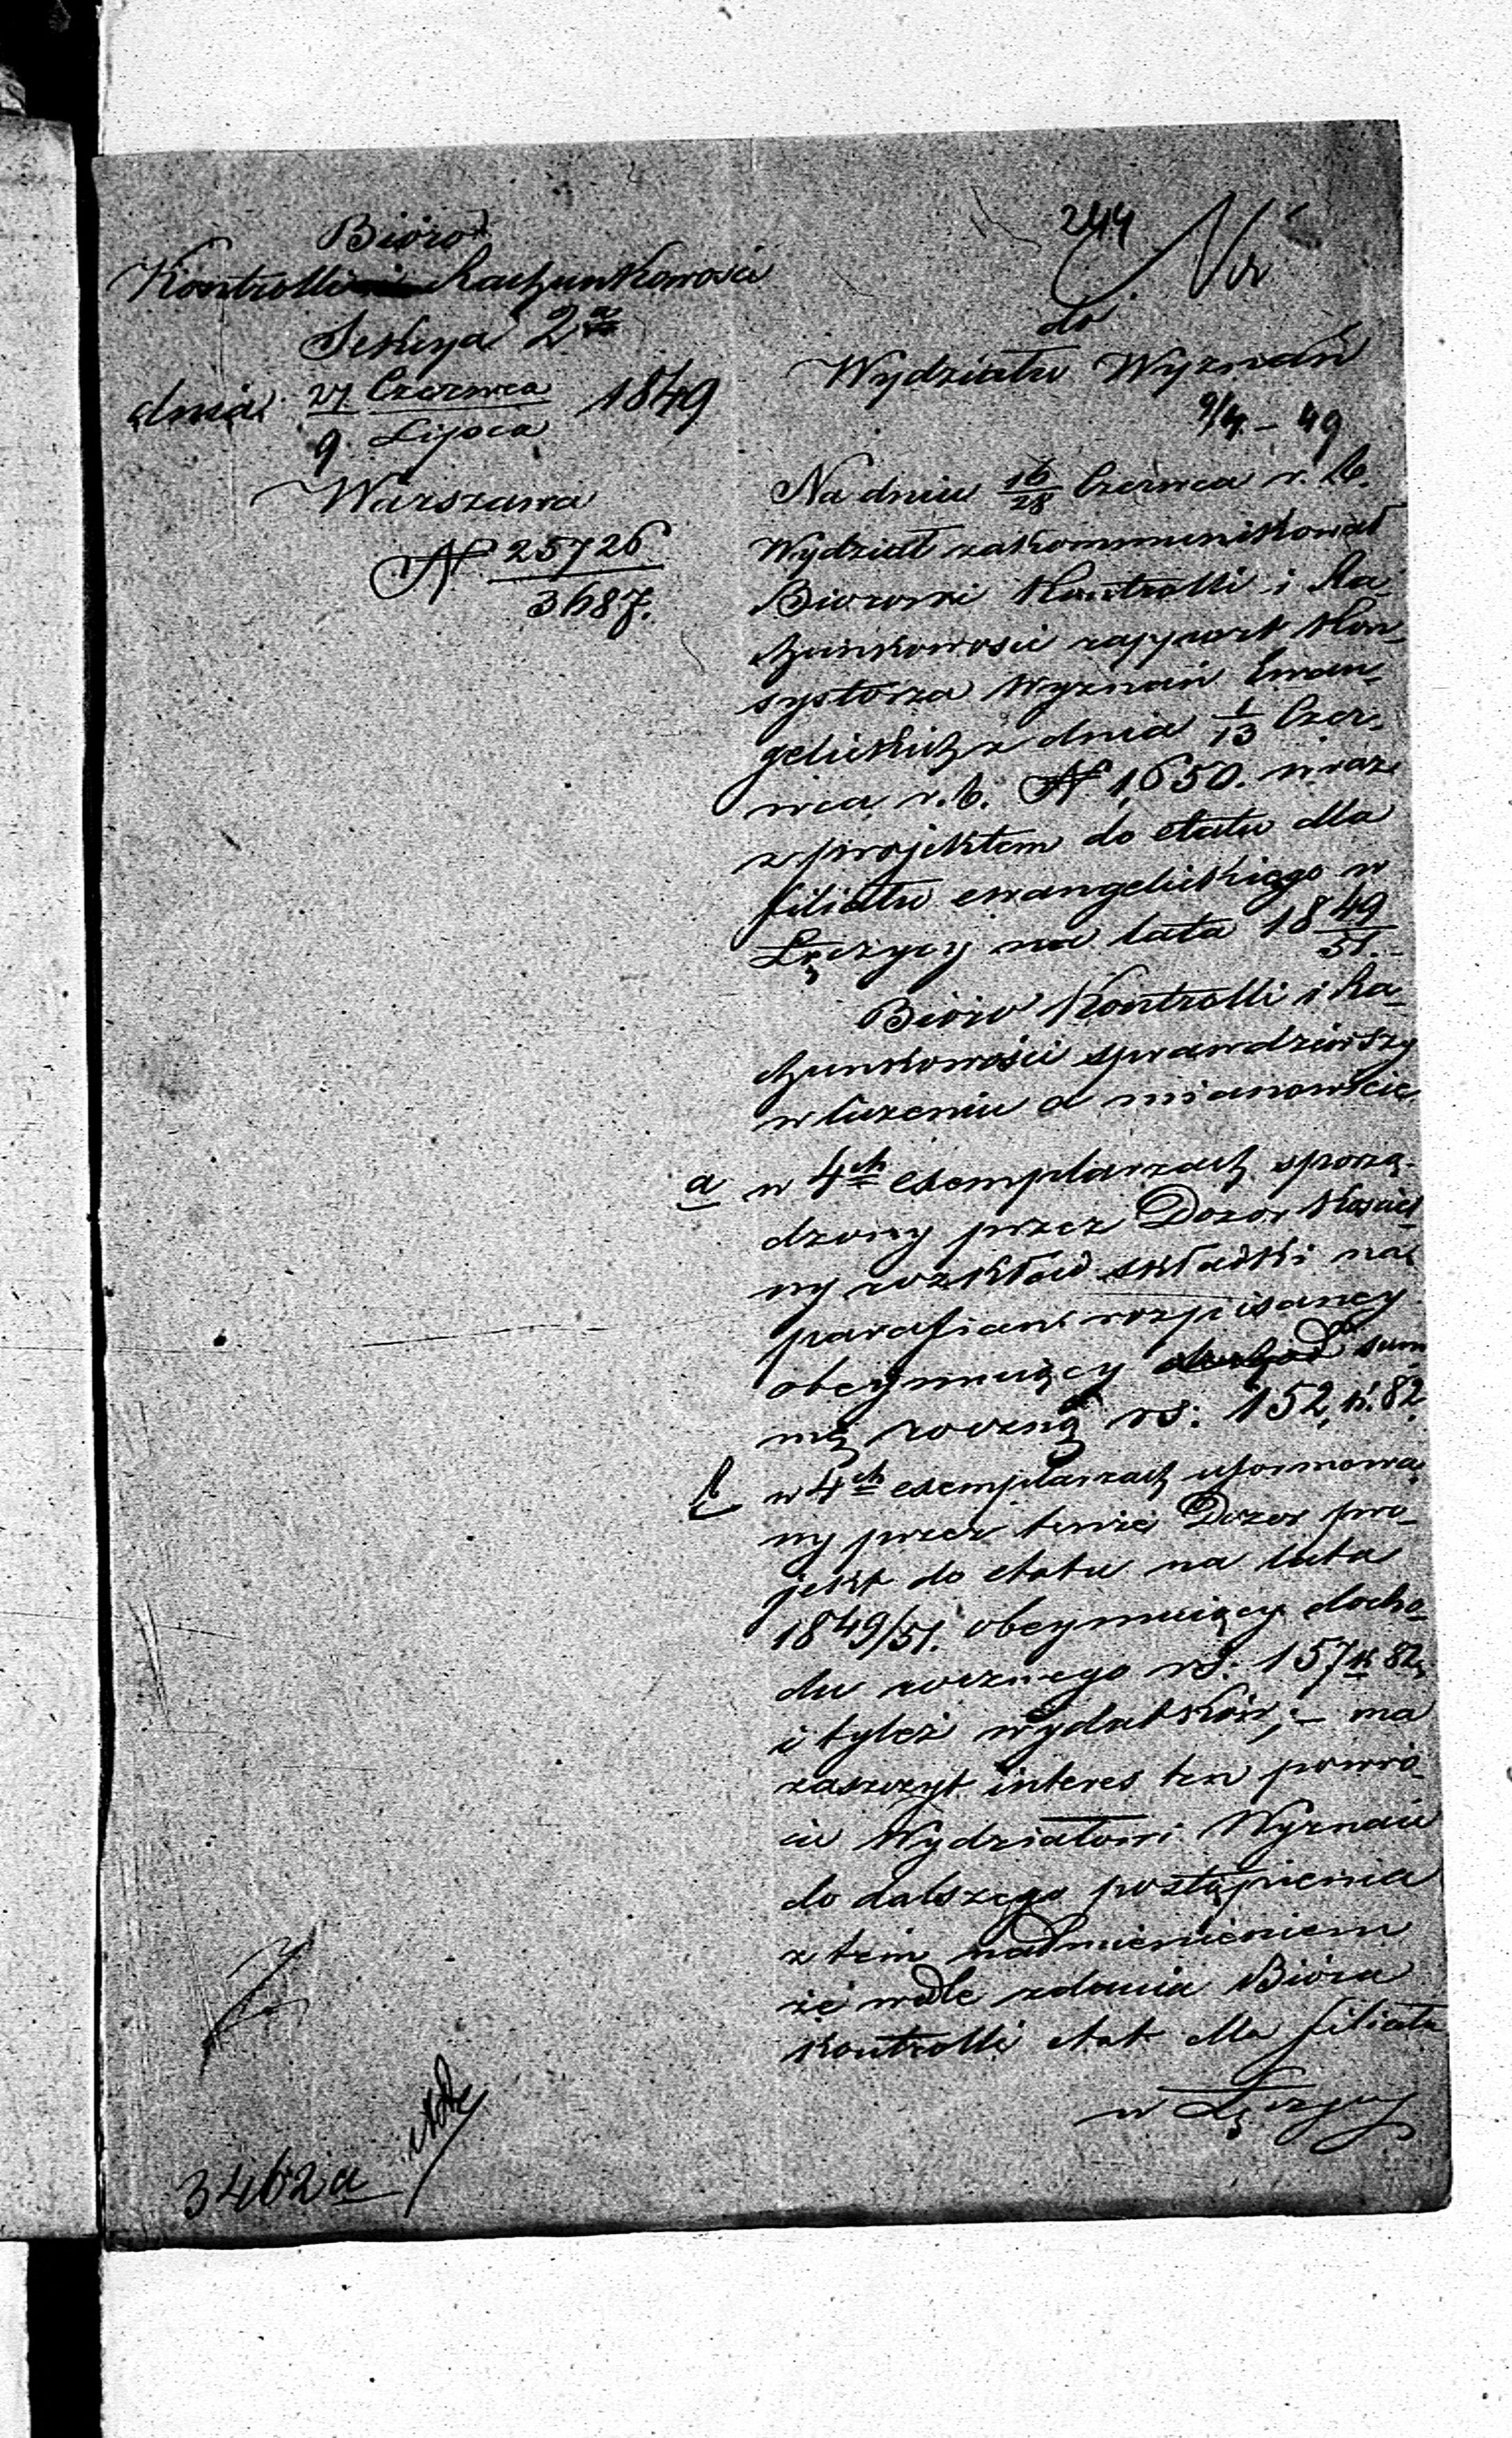 Bióro
Kontrolli i Rachunkowości
Sekcya 2a
dnia 27 Czerwca / 9 Lipca 1849
Warszawa
N 25726 / 3687.
244
do
Wydziału Wyznań
9/7. – 49
Na dniu 16/28 Czerwca r. b.
Wydział zakommunikował
Biorowi Kontrolli i Ra-
chunkowości rapport Kon-
systorza Wyznań Ewan-
gelickich z dnia 1/13 Czer-
wca r. b. N 1,650. wraz
z projektem do etatu dla
filiału ewangelickiego w
Łęczycy na lata 1849/51.
Bióro Kontrolli i Ra-
chunkowości sprawdziwszy
w liczeniu a mianowicie
a w 4ch exemplarzach sporzą-
dzony przez Dozór Kościel-
ny rozkład składki na
parafian rozpisaney
obeymuiący sum-
mę roczną rs: 152, k. 82.
b w 4ch exemplarzach uformowa-
ny przez tenże Dozór pro-
jekt do etatu na lata
1849/51. obeymuiący docho-
du rocznego rs: 157 k 82,
i tyleż wydatków; – ma
zaszczyt interes ten powró-
cić Wydziałowi Wyznań
do dalszego postąpienia
z tem nadmienieniem
że wedle zdania Bióra
Kontrolli etat dla filiału
w Łęczycy
3462a